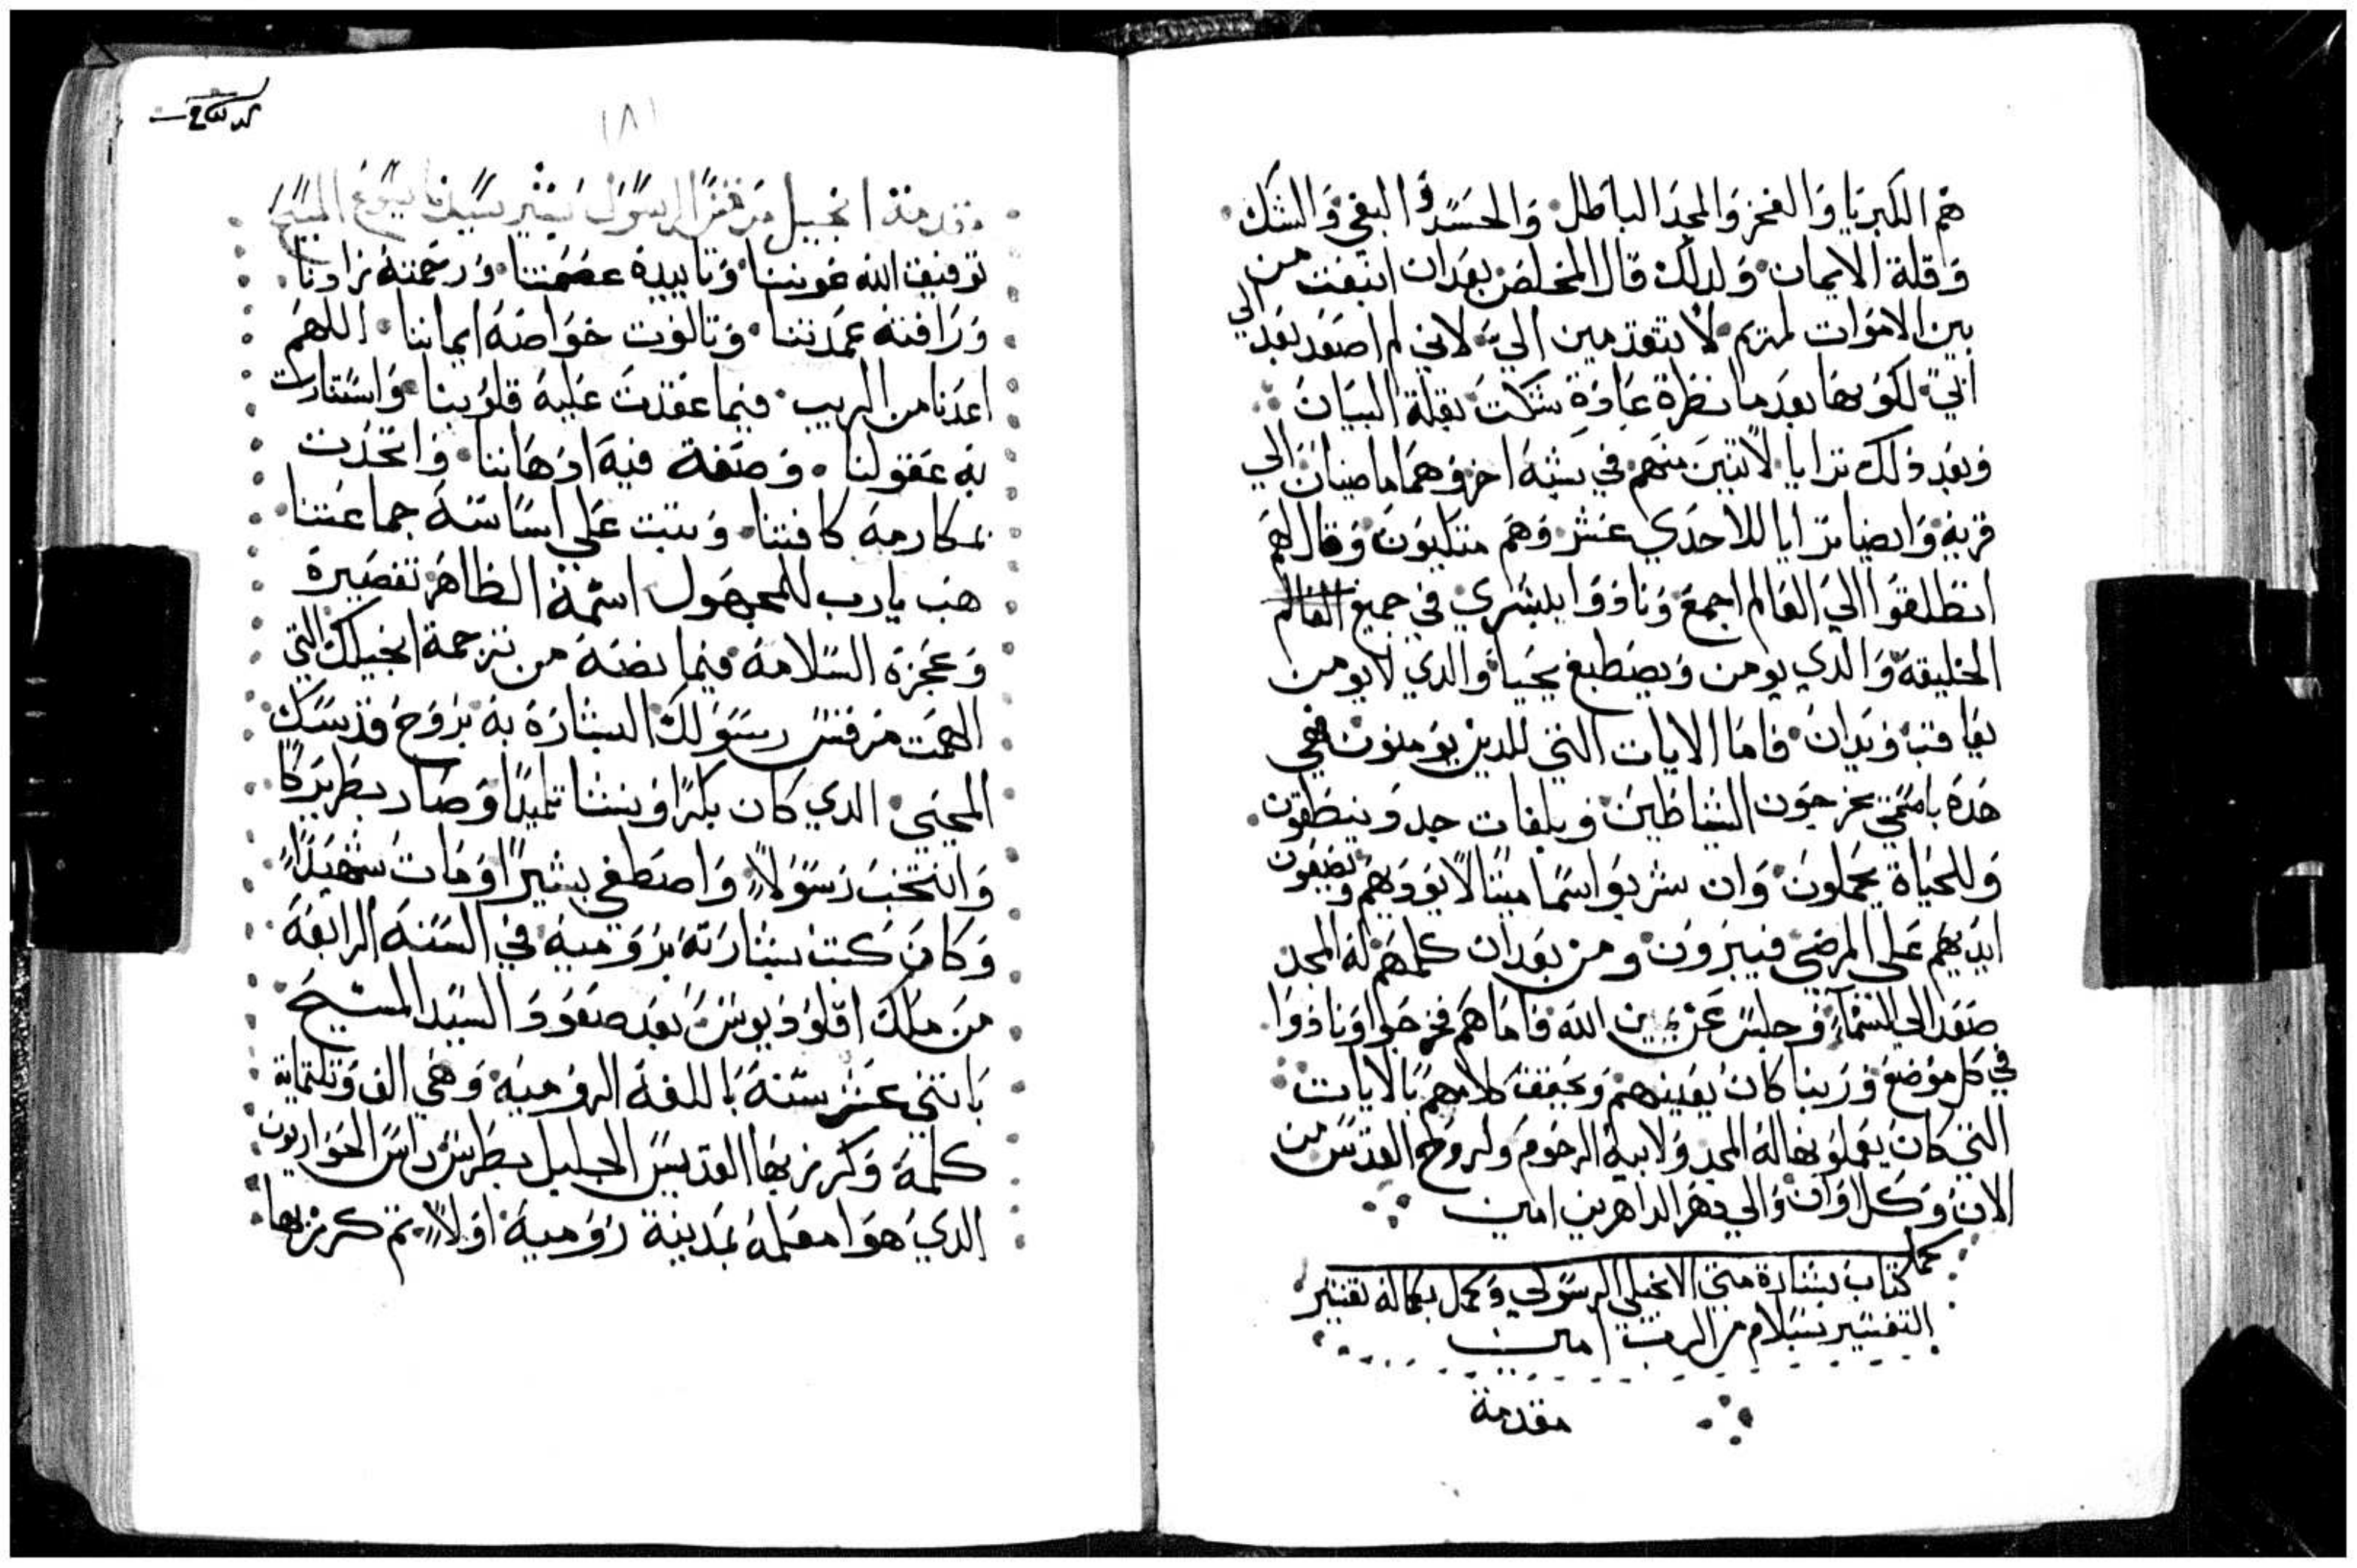 هم الكبريا والفخر والمجد الباطل والحسد والبغي والشك
وقلة الايمان ولدلك قال المخلص بعد ان انبعت من
بين الاموات لمريم لا تتقدمين الي لاني لم اصعد بعد الي
ابي لكونها بعد ما نظرة عادة شكت بقلة البيان
وبعد ذلك ترايا لاتنين منهم في شبه اخر وهما ماضيان الي
قرية وايضا ترايا للاحدي عشر وهم متكيون وقال لهم
انطلقوا الي العالم اجمع ونادوا بالبشري في جميع العالم
الخليقة والدي يومن ويصطبغ يحيا والدي لا يومن
يعاقب ويدان فاما الايات التي للدين يومنون فهي
هده باسمي يخرجون الشياطين وبلغات جدد ينطقون
وللحياة يحملون وان شربوا سما ميتا لا يوديهم ويضعون
ايديهم على المرضي فيبرون ومن بعد ان كلمهم له المجد
صعد الي السماء وجلس عن يمين الله فاما هم فخرجوا ونادوا
في كل موضع وربنا كان يعينهم ويحقق كلامهم بالايات
التي كان يعملونها له المجد ولابيه الرحوم ولروح القدس من
الان وكل اوان والي دهر الداهرين امين
كمل
كتاب بشارة متي الانجيلي الرسولي وكمل بكماله تفسير
التفسير بسلام من الرب امين
مقدمة
١٨١
مقدمة انجيل مرقس الرسول بشير سيدنا يسوع المسيح
توفيق الله غويننا وتاييده عصمتنا ورحمته زادنا
ورافته عمدتنا وتالوت خواصه ايماننا اللهم
اعدنا من الريب فيما عقدت عليه قلوبنا واستنارت
به عقولنا وصفة فيه ادهاننا واتخدت
بمكارمه كافتنا وبنيت على اساسه جماعتنا
هب يارب للمجهول اسمه الظاهر تقصيره
وعجزه السلامة فيما نضه من ترجمة انجيلك التي
الهمت مرقس رسولك البشارة به بروح قدسك
المحيي الدي كان بكرا ونشا تلميدا وصار بطريركا
وانتخب رسولا واصطفي بشيرا ومات شهيدا
وكان كتب بشارته برومية في السنة الرابعة
من ملك اقلوديوس بعد صعود السيد المسيح
باتني عشر سنة باللغة الرومية وهي الف وتلتماية
كلمة وكرز بها القديس الجليل بطرس راس الحواريون
الدي هوا معلمه بمدينة رومية اولا تم كرز بها